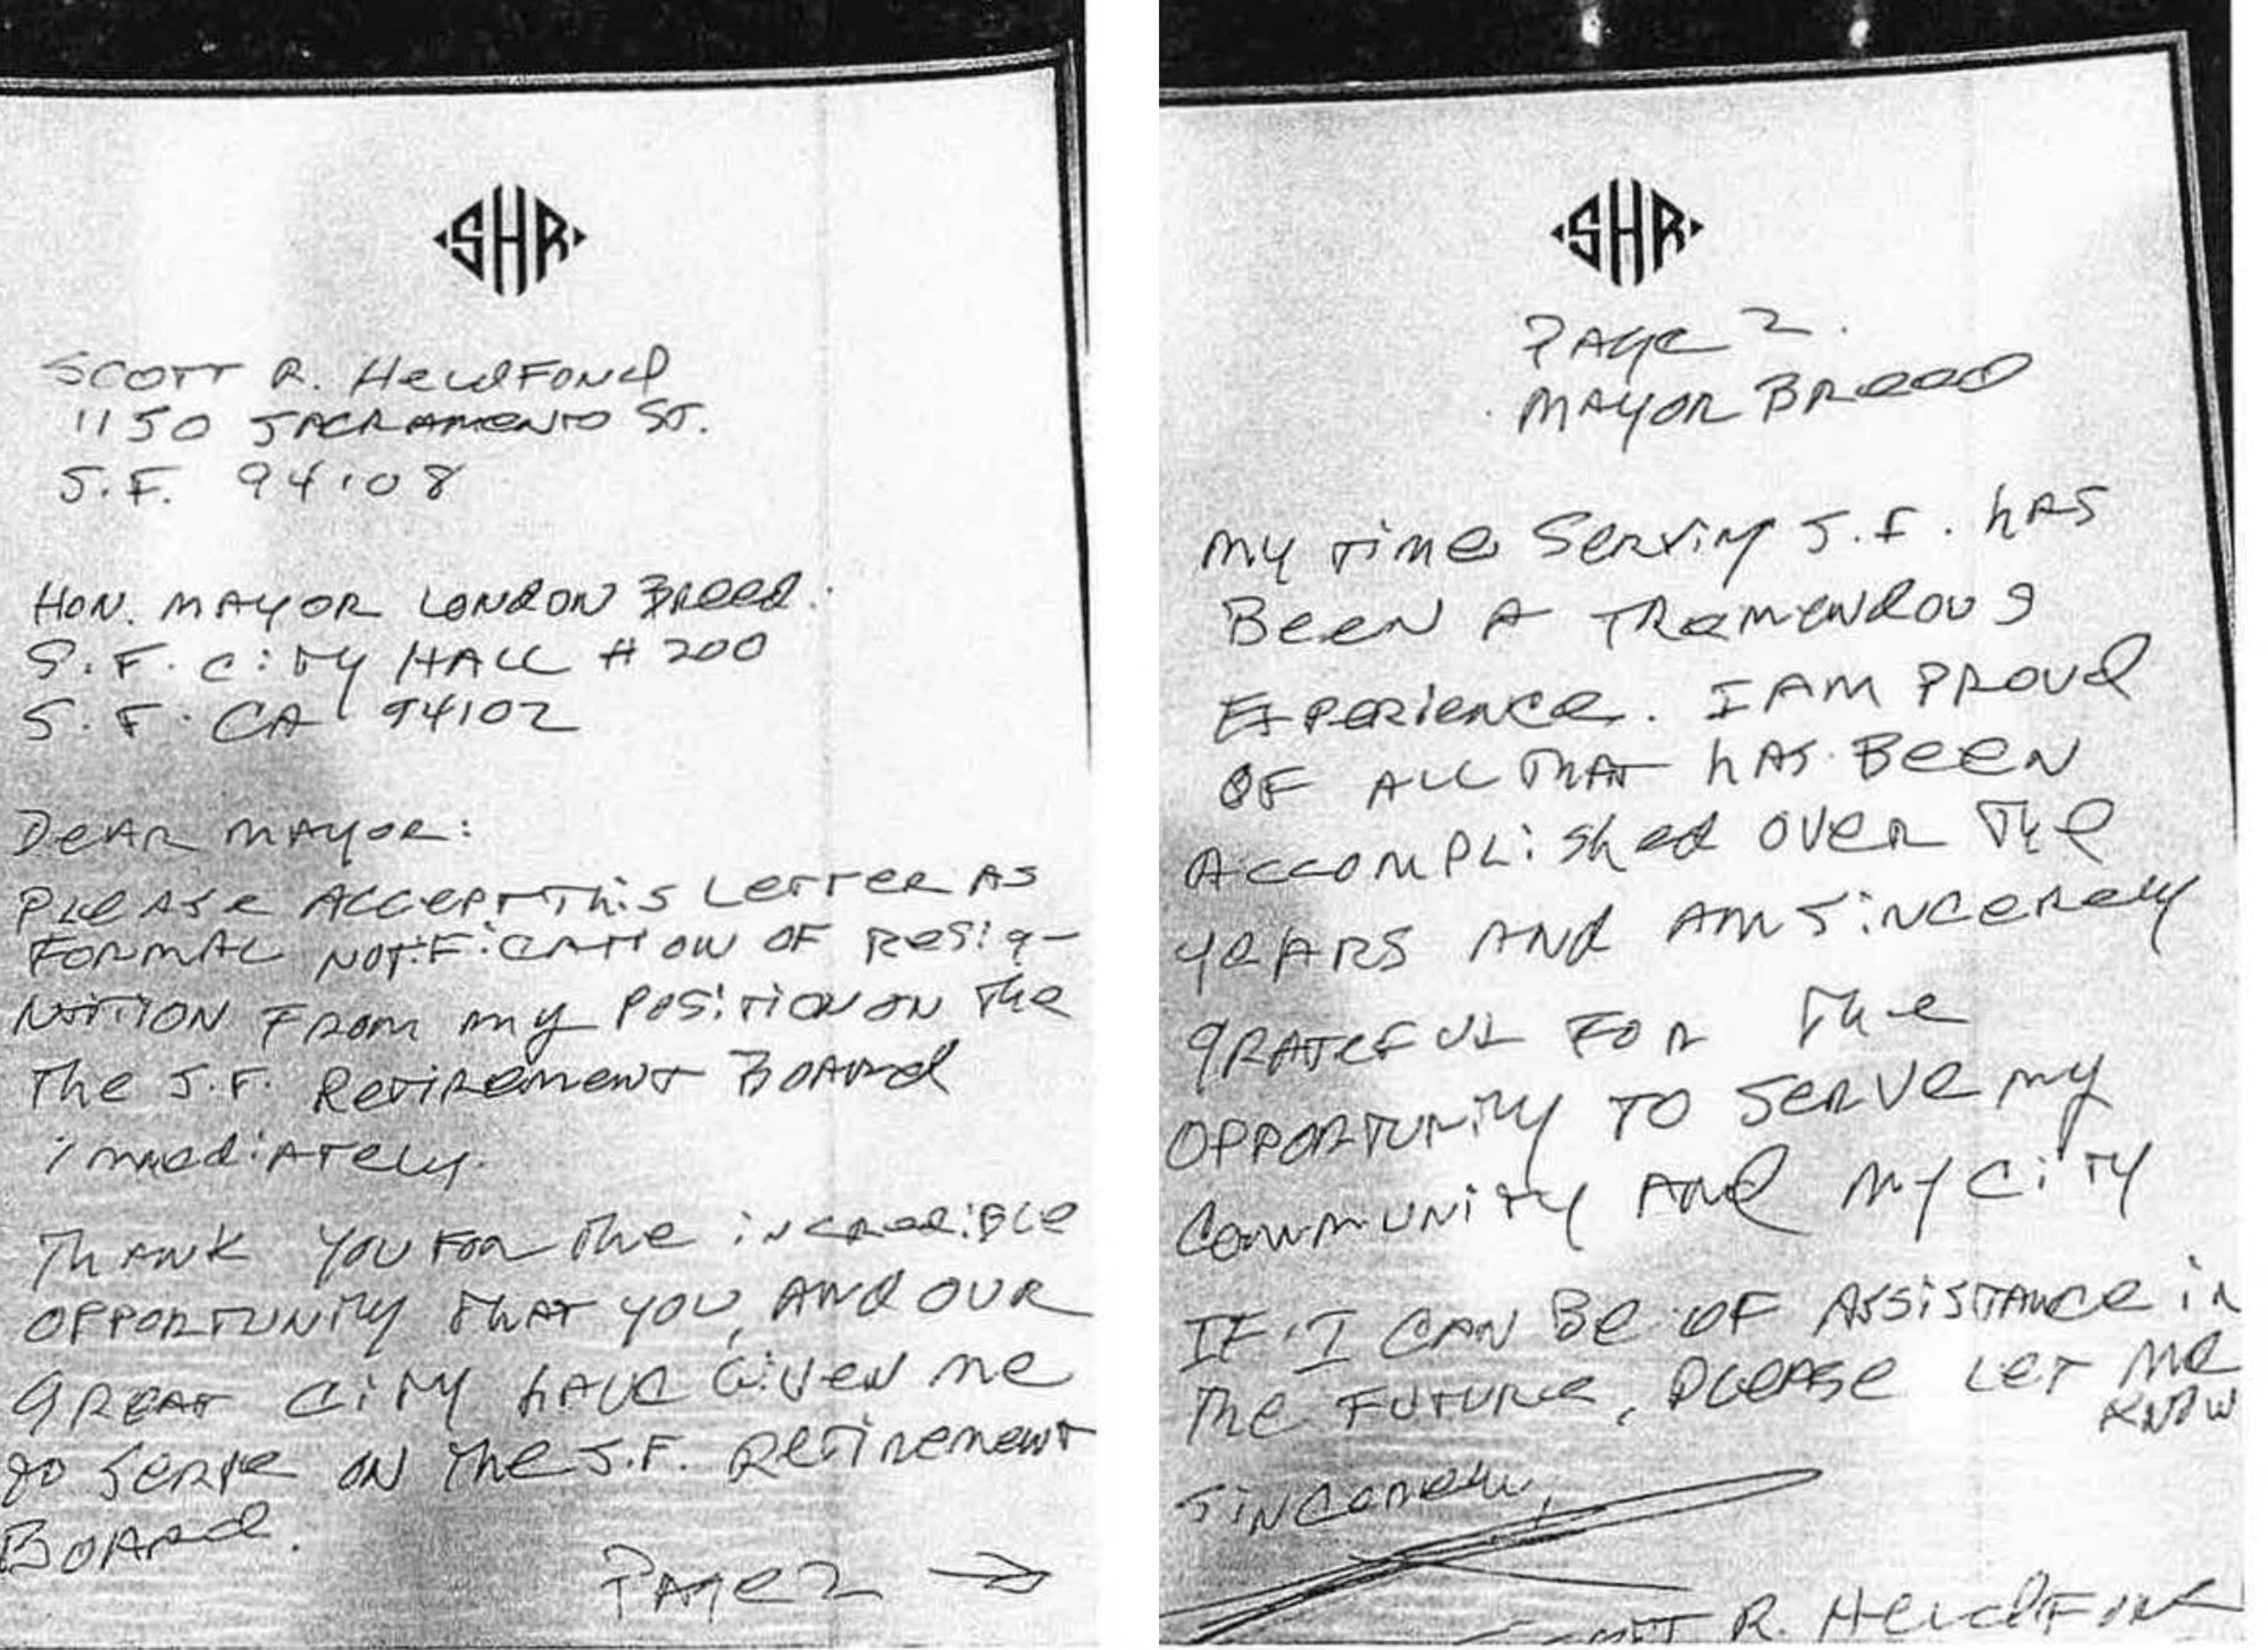 SHR
SCOTT R. HeldFOND
1150 SACRAMENTO ST.
S.F. 94108
HON. MAYOR LONDON BREED.
S.F. CiTY HALL # 200
S.F. CA 94102
DEAR MAYOR:
PLEASE ACCEPT THiS LETTER AS
FORMAL NOTiFiCATION OF RESiG-
NATION FROM MY POSiTION ON THE
THE S.F. RETIREMENT BOARD
immediATELY.
THANK YOU FOR THE iNCREDiBLE
OPPORTUNITY THAT YOU, AND OUR
GREAT CiTY HAVE GiVEN ME
TO SERVE ON THE S.F. RETIREMENT
BOARD.
PAGE 2 →
SHR
PAGE 2.
MAYOR BREED
MY TIME SERVING S.F. HAS
BEEN A TREMENDOUS
EXPERIENCE. I AM PROUD
OF ALL THAT HAS BEEN
ACCOMPLiSHED OVER THE
YEARS AND AM SiNCERELY
GRATEFUL FOR THE
OPPORTUNITY TO SERVE MY
COMMUNITY AND MY CiTY
IF I CAN BE OF ASSiSTANCE iN
THE FUTURE, PLEASE LET ME
KNOW
SiNCERELY,
R. HeldFOND